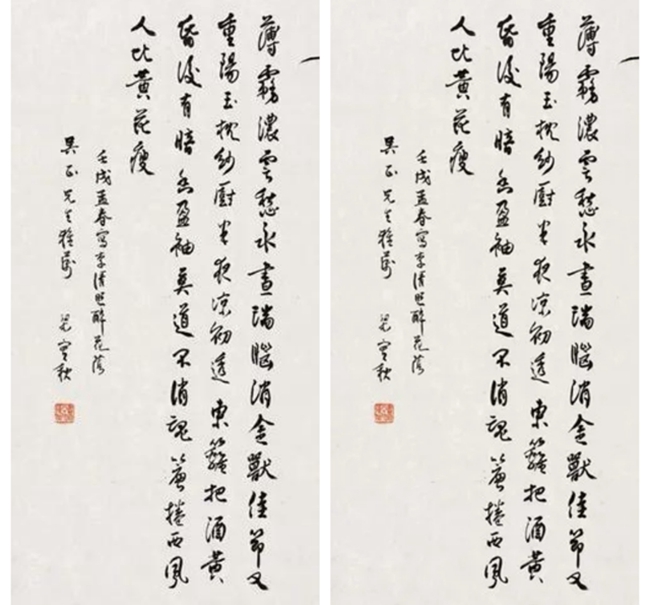 薄霧濃雲愁永晝瑞腦消金獸佳節又
重陽玉枕紗廚半夜涼初透東籬把酒黃
昏後有暗香盈袖莫道不消魂簾捲西風
人比黃花瘦
壬戌孟春寫李清照醉花陰
正兄之雅屬 梁實秋
薄霧濃雲愁永晝瑞腦消金獸佳節又
重陽玉枕紗廚半夜涼初透東籬把酒黃
昏後有暗香盈袖莫道不消魂簾捲西風
人比黃花瘦
壬戌孟春寫李清照醉花陰
正兄之雅屬 梁實秋